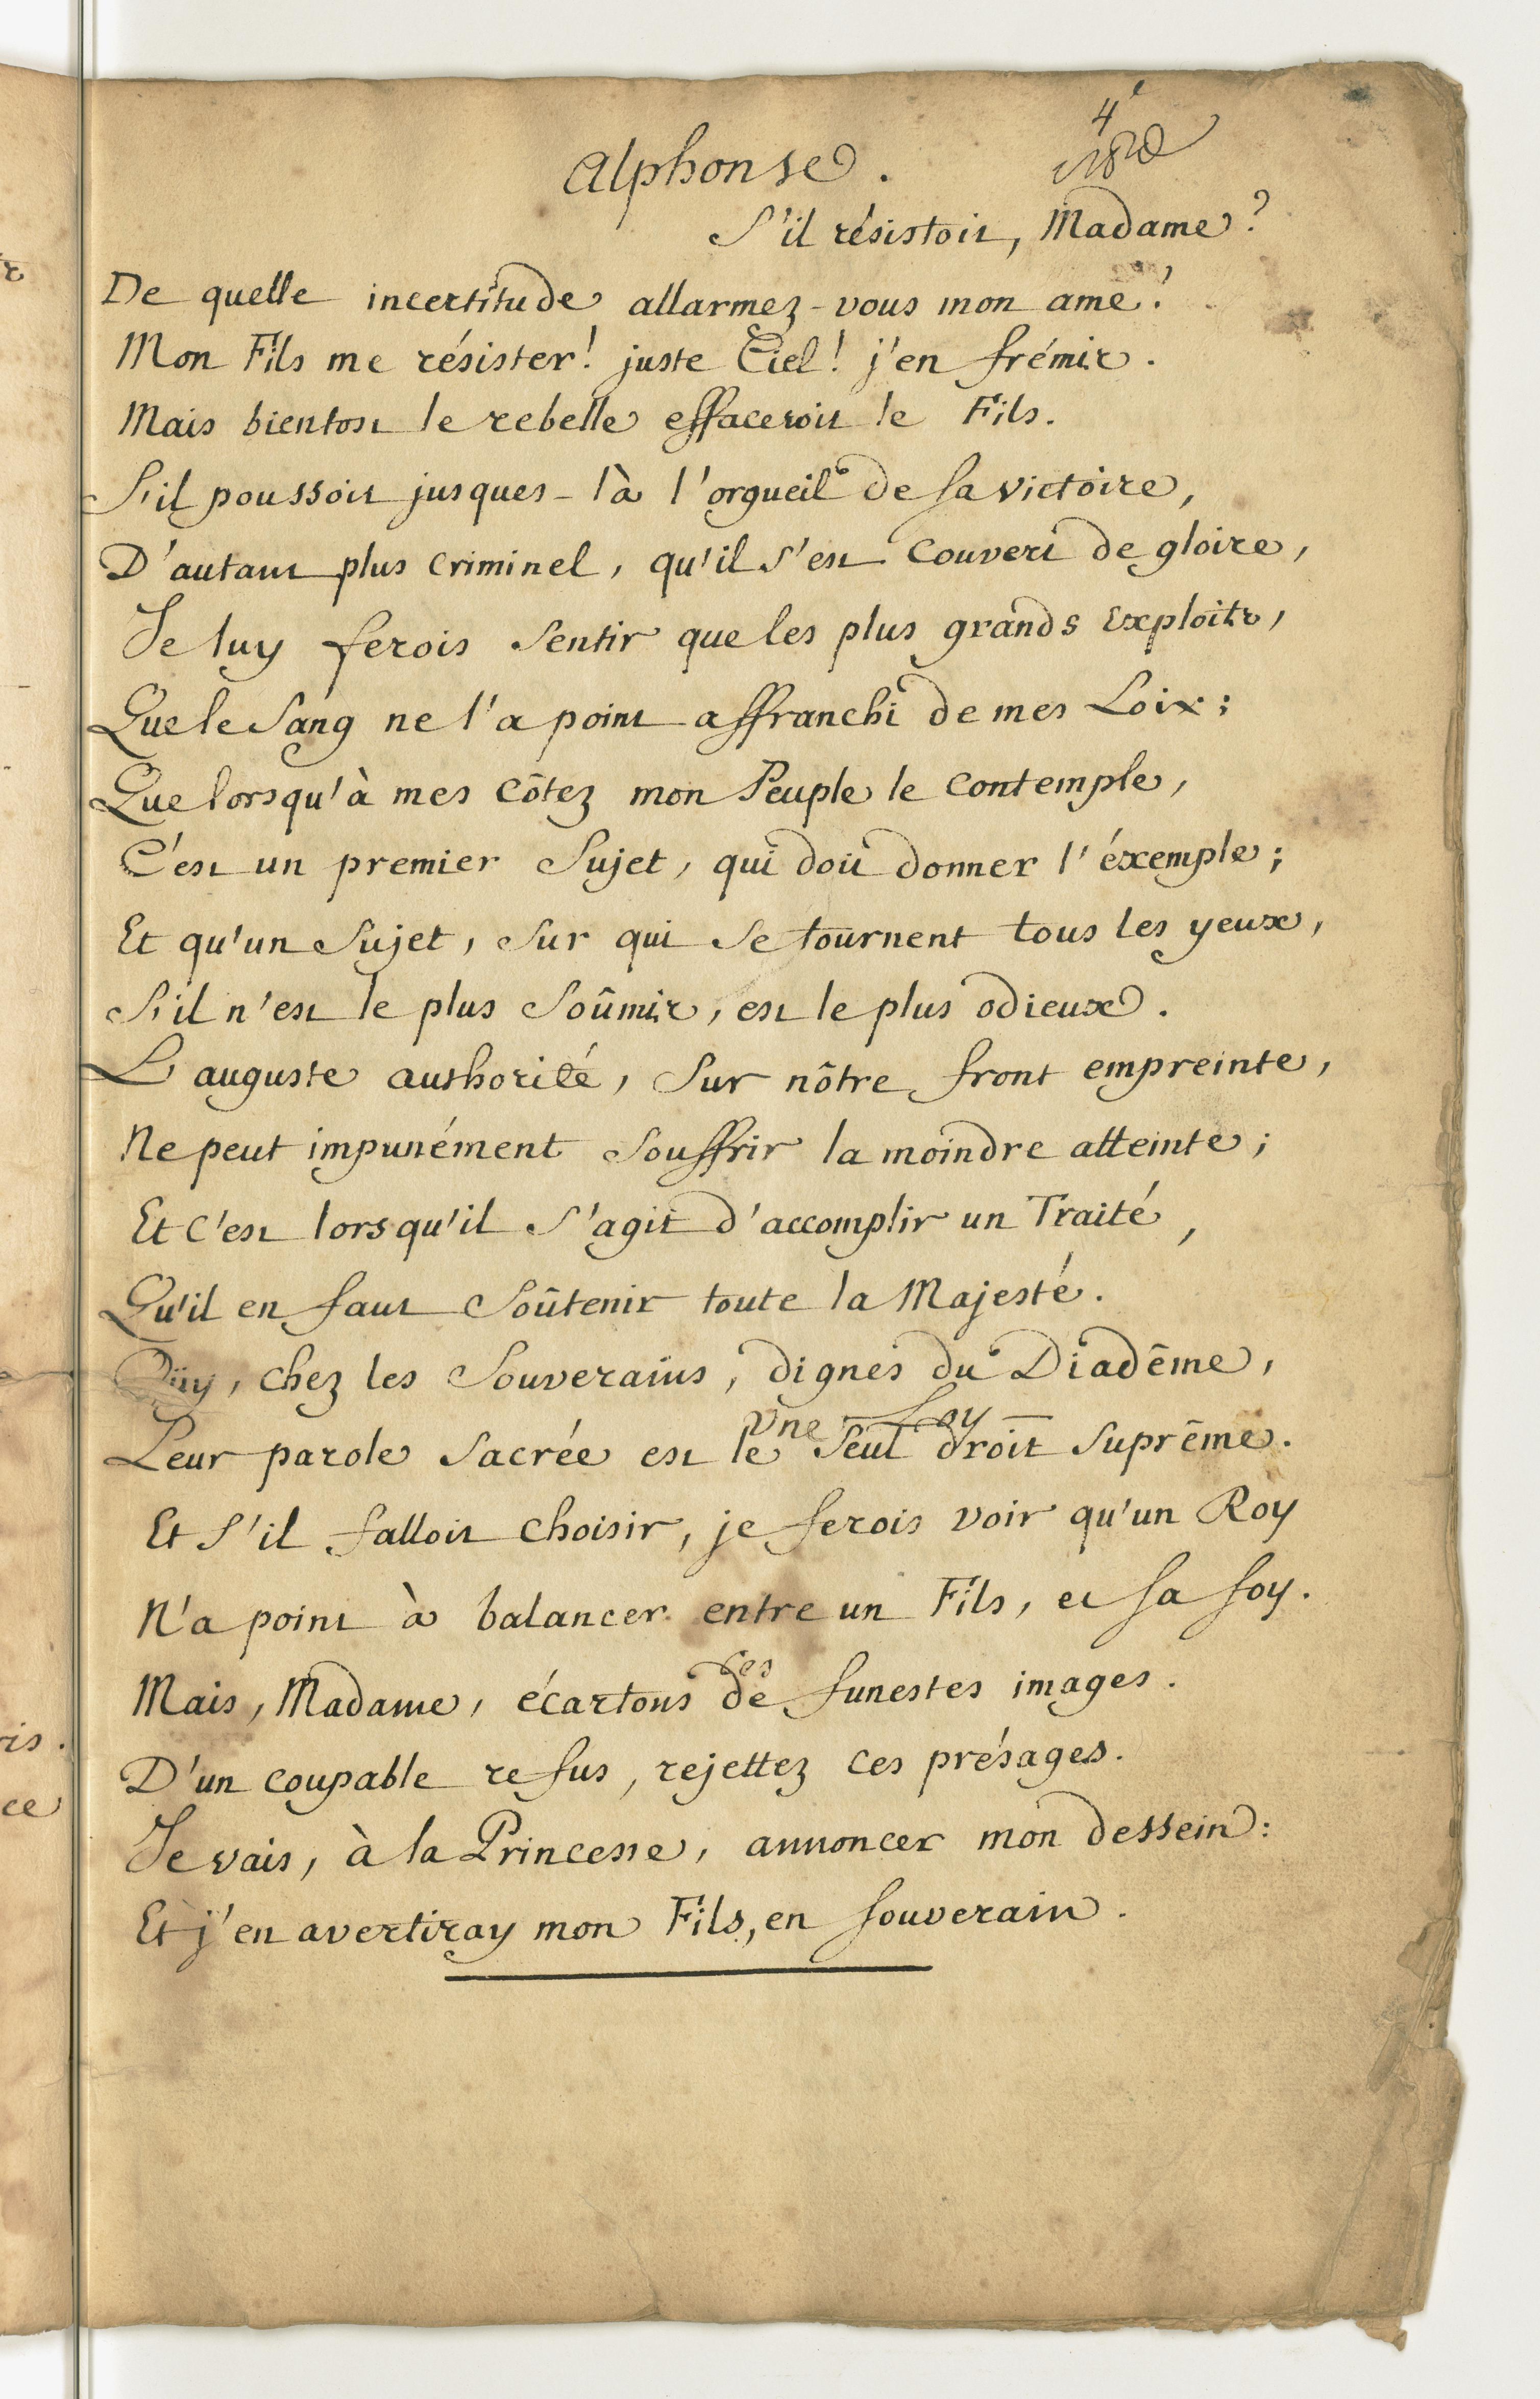 4e
Alphonse.
S'il résistoit, Madame?
De quelle incertitude allarmez-vous mon ame!
Mon Fils me résister! juste Ciel! j'en frémis.
Mais bientost le rebelle effaceroit le Fils.
S'il poussoit jusques-là l'orgueil de sa victoire,
D'autant plus criminel, qu'il s'est couvert de gloire,
Je luy ferois sentir que les plus grands Exploits,
Que le Sang ne l'a point affranchi de mes Loix;
Que lorsqu'à mes côtez mon Peuple le contemple,
C'est un premier Sujet, qui doit donner l'éxemple;
Et qu'un Sujet, sur qui se tournent tous les yeux,
S'il n'est le plus soûmis, est le plus odieux.
L'auguste authorité, sur nôtre front empreinte,
Ne peut impunément souffrir la moindre atteinte;
Et c'est lorsqu'il s'agit d'accomplir un Traité,
Qu'il en faut soûtenir toute la Majesté.
Oüy, chez les Souverains, dignes du Diadême,
une Loy
Leur parole sacrée est le seul droit suprême.
Et s'il falloit choisir, je ferois voir qu'un Roy
N'a point à balancer entre un Fils, et sa foy.
ces
Mais, Madame, écartons de funestes images.
D'un coupable refus, rejettez ces présages.
Je vais, à la Princesse, annoncer mon dessein:
Et j'en avertiray mon Fils, en souverain.
ris.
ce